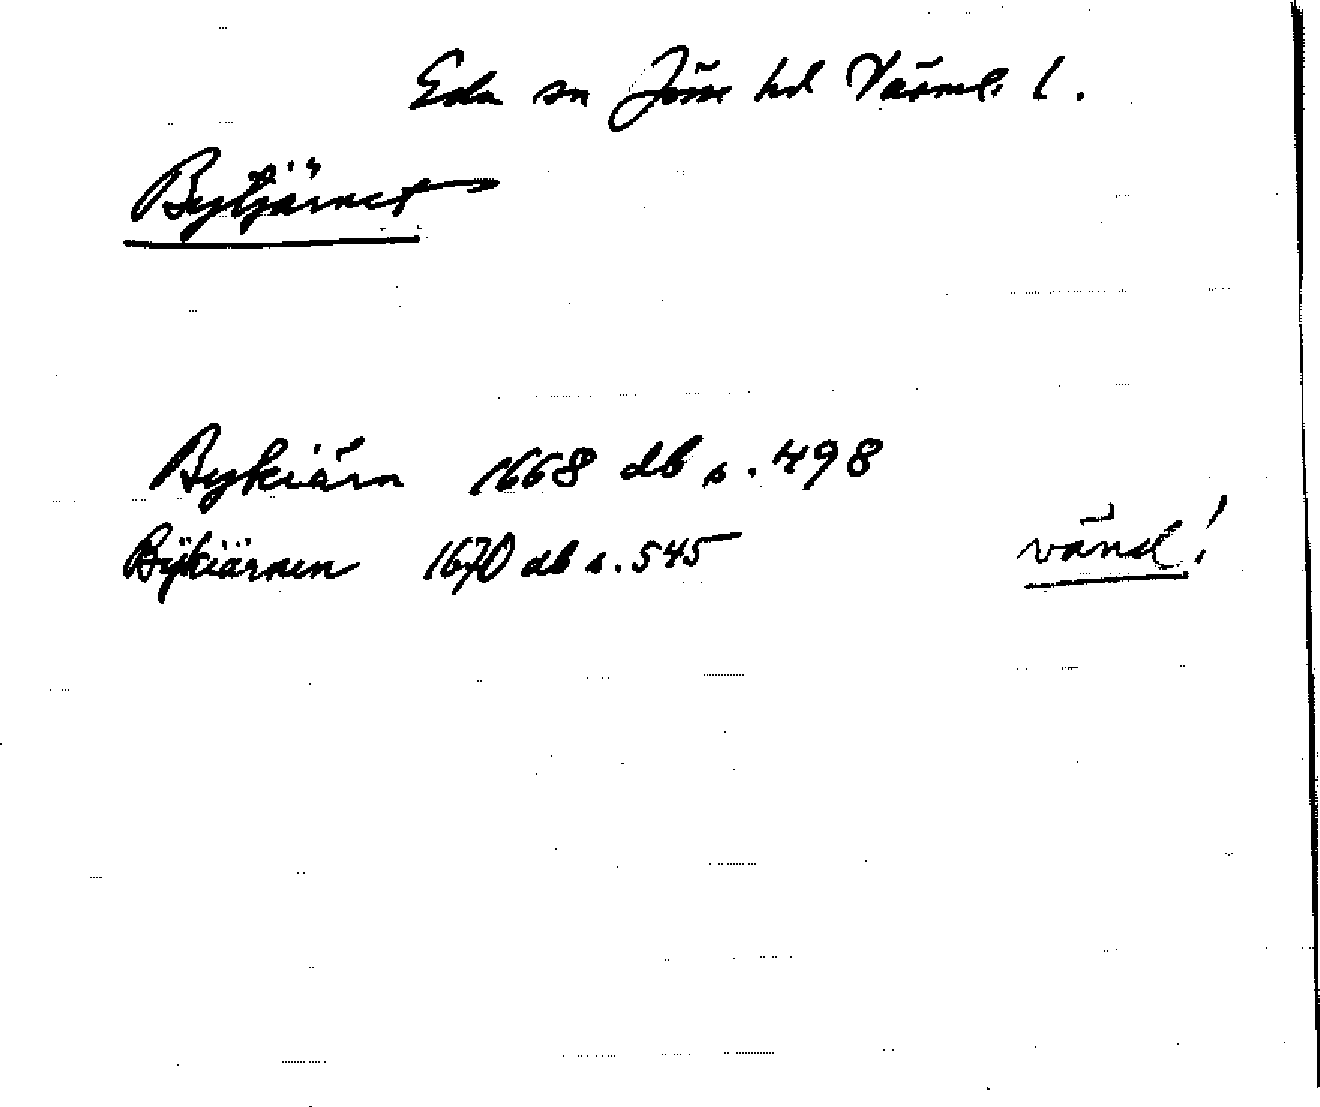 Eda sn Jösse hd Värml. l.
Bytjärnet
Bykiärn 1668 db s. 498
Bÿkiärnen 1670 db s. 545
vänd!